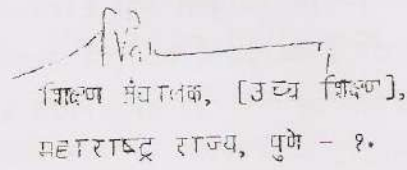 शिक्षण संचालक, [उच्च शिक्षण],
महाराष्ट्र राज्य, पुणे - १.